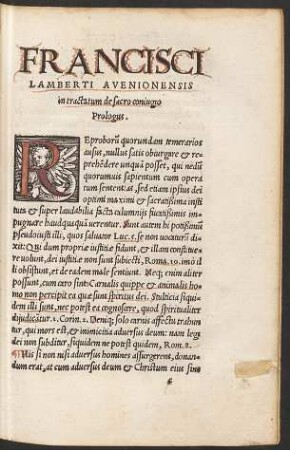 FRANCISCI
LAMBERTI AVENIONENSIS
in tractatum de sacro coniugio
Prologus.
REproborū quorundam temerarios
ausus, nullus satis obiurgare & re⸗
prehēdere unquā posset, qui nedū
quorumuis sapientum cum opera
tum sentent as, sed etiam ipsius dei
optimi maximi & sacratißima insti
tuta & super laudabilia facta calumnijs fucatißimis im⸗
pugnare haudquaquā uerentur. Sunt autem hi potißimū
pseudoiusti illi, quos saluator Luc. 5. se non uocaturū di⸗
xit: Qui dum propriæ iustitiæ fidunt, & illam constitue
re uolunt, dei iustitiæ non sunt subiecti, Roma. 10. imò il
li obsistunt, et de eadem male sentiunt. Neq; enim aliter
possunt, cum æxo sint: Carnalis quippe & animalis ho⸗
mo non percipit ea quæ sunt spiritus dei. Stulticia siqui⸗
dem illi sunt, nec potest ea cognoscere, quod spiritualiter
dijudicātur. 1. Corin. 2. Deniq; solo carnis affectu trahun
tur, qui mors est, & inimicitia aduersus deum: nam legi
dei non subditur, siquidem ne potest quidem, Rom. 8.
His si non nisi aduersus homines assurgerent, donan⸗
dum erat, at cum aduersus deum & Christum eius sint